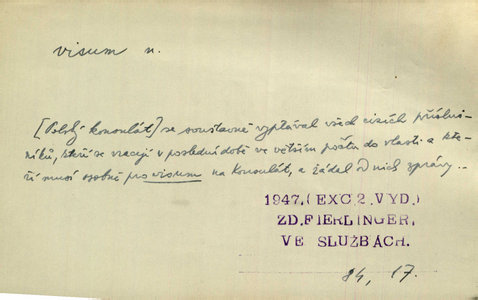 visum n.
[Polský konsulát] se soustavně vyptával všech cizích příslu-
níků, kteří se vracejí v poslední době ve větším počtu do vlasti a kte-
ří musí osobně pro visum na konsulát, a žádal od nich zprávy..
1947, (EXC. 2. VYD.)
ZD. FIERLINGER,
VE SLUŽBÁCH.
84, 17.